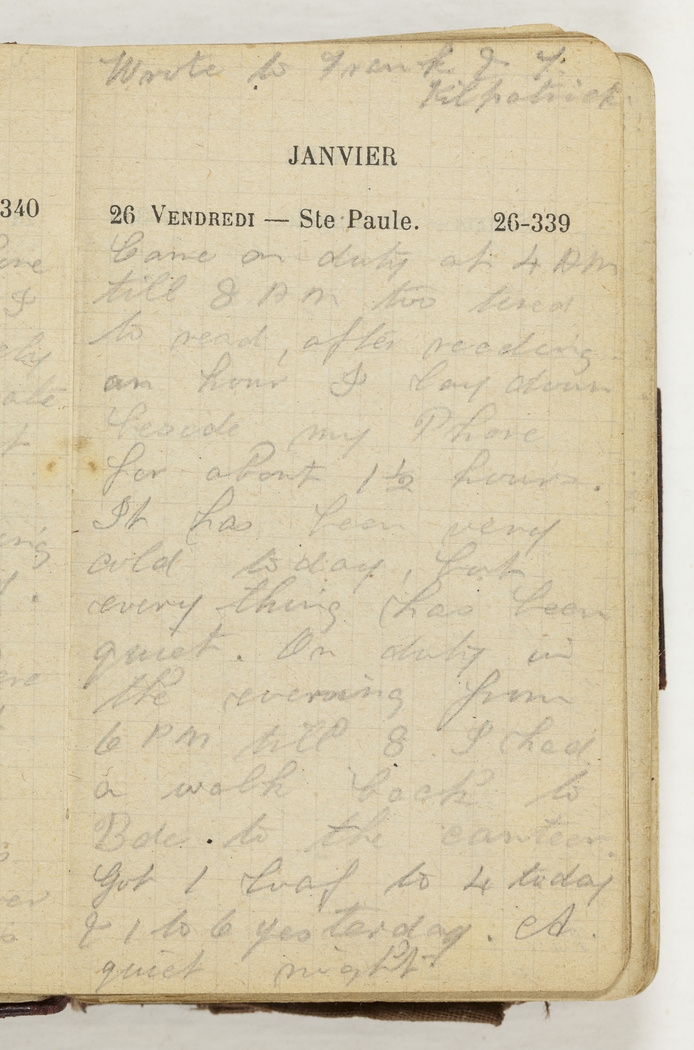 Wrote to Frank & Y.
Kilpatrick.
JANVIER
340
26 VENDREDI — Ste Paule. 26-339
Came on duty at 4 AM
till 8 AM too tired
to read, after reading
an hour I lay down
beside my Phone
for about 1½ hours.
It has been very
cold today, but
every thing has been
quiet. On duty in
the evening from
6 PM till 8 I had
a walk back to
Bde. to the canteen.
Got 1 loaf to 4 today
& 1 to 6 yesterday. A.
quiet night